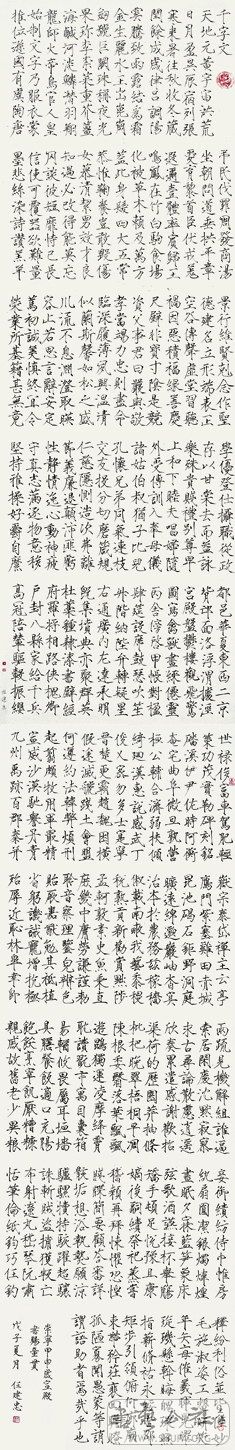 千字文
天地元黃宇宙洪荒
日月盈昃辰宿列張
寒來暑往秋收冬藏
閏餘成歲律呂調陽
雲騰致雨露結為霜
金生麗水玉出崑崗
劍號巨闕珠稱夜光
果珍李柰菜重芥薑
海鹹河淡鱗潛羽翔
龍師火帝鳥官人皇
始制文字乃服衣裳
推位遜國有虞陶唐
弔民伐罪周發商湯
坐朝問道垂拱平章
愛育黎首臣伏戎羌
遐邇壹體率賓歸王
鳴鳳在竹白駒食場
化被草木賴及萬方
蓋此身髮四大五常
恭惟鞠養豈敢毀傷
女慕清潔男效才良
知過必改得能莫忘
罔談彼短靡恃己長
信使可覆器欲難量
墨悲絲染詩讚羔羊
景行維賢剋念作聖
德建名立形端表正
空谷傳聲虛堂習聽
禍因惡積福緣善慶
尺璧非寶寸陰是競
資父事君曰嚴與敬
孝當竭力忠則盡命
臨深履薄夙興溫凊
似蘭斯馨如松之盛
川流不息淵澄取映
容止若思言辭安定
篤初誠美慎終宜令
榮業所基籍甚無竟
學優登仕攝職從政
存以甘棠去而益詠
樂殊貴賤禮別尊卑
上和下睦夫唱婦隨
外受傅訓入奉母儀
諸姑伯叔猶子比兒
孔懷兄弟同氣連枝
交友投分切磨箴規
仁慈隱惻造次弗離
節義廉退顛沛匪虧
性靜情逸心動神疲
守真志滿逐物意移
堅持雅操好爵自縻
都邑華夏東西二京
背邙面洛浮渭據涇
宮殿盤鬱樓觀飛驚
圖寫禽獸畫綵僊靈
丙舍傍啓甲帳對楹
肆筵設席鼓瑟吹笙
升階納陛弁轉疑星
右通廣內左達承明
既集墳典亦聚群英
杜藁鍾隸漆書壁經
府羅將相路俠槐卿
戶封八縣家給千兵
高冠陪輦驅轂振纓
世祿侈富車駕肥輕
策功茂實勒碑刻銘
磻溪伊尹佐時阿衡
奄宅曲阜微旦孰營
桓公輔合濟弱扶傾
綺迴漢惠說感武丁
俊乂密勿多士寔寧
晉楚更霸趙魏困橫
假途滅虢踐土會盟
何遵約法韓弊煩刑
起翦頗牧用軍最精
宣威沙漠馳譽丹青
九州禹跡百郡秦并
嶽宗泰岱禪主云亭
鴈門紫塞雞田赤城
昆池碣石鉅野洞庭
曠遠緜邈巖岫杳冥
治本於農務茲稼穡
俶載南畝我藝黍稷
稅熟貢新勸賞黜陟
孟軻敦素史魚秉直
庶幾中庸勞謙謹敕
聆音察理鑒皃辨色
貽厥嘉猷勉其祗植
省躬譏誡寵增抗極
殆辱近恥林皋幸即
兩疏見機解組誰逼
索居閒處沈默寂寥
求古尋論散慮逍遙
欣奏累遣慼謝歡招
渠荷的歷園莽抽條
枇杷晚翠梧桐早凋
陳根委翳落葉飄颻
遊鵾獨運凌摩絳霄
耽讀翫市寓目囊箱
易輶攸畏屬耳垣墻
具膳飡飯適口充腸
飽飫烹宰飢厭糟糠
親戚故舊老少異糧
妾御績紡侍巾帷房
紈扇圓潔銀燭煒煌
晝眠夕寐藍笋象床
弦歌酒讌接杯舉觴
矯手頓足悅豫且康
嫡後嗣續祭祀蒸嘗
稽顙再拜悚懼恐惶
牋牒簡要顧答審詳
骸垢想浴執熱願涼
驢騾犢特駭躍超驤
誅斬賊盜捕獲叛亡
布射遼丸嵇琴阮嘯
恬筆倫紙鈞巧任釣
釋紛利俗竝皆佳妙
毛施淑姿工顰妍笑
年矢每催羲暉朗曜
琁璣懸斡晦魄環照
指薪脩祜永綏吉劭
矩步引領俯仰廊廟
束帶矜莊徘徊瞻眺
孤陋寡聞愚蒙等誚
謂語助者焉哉乎也
崇寧甲申歲宣殿
書賜童貫
戊子夏月 任建忠